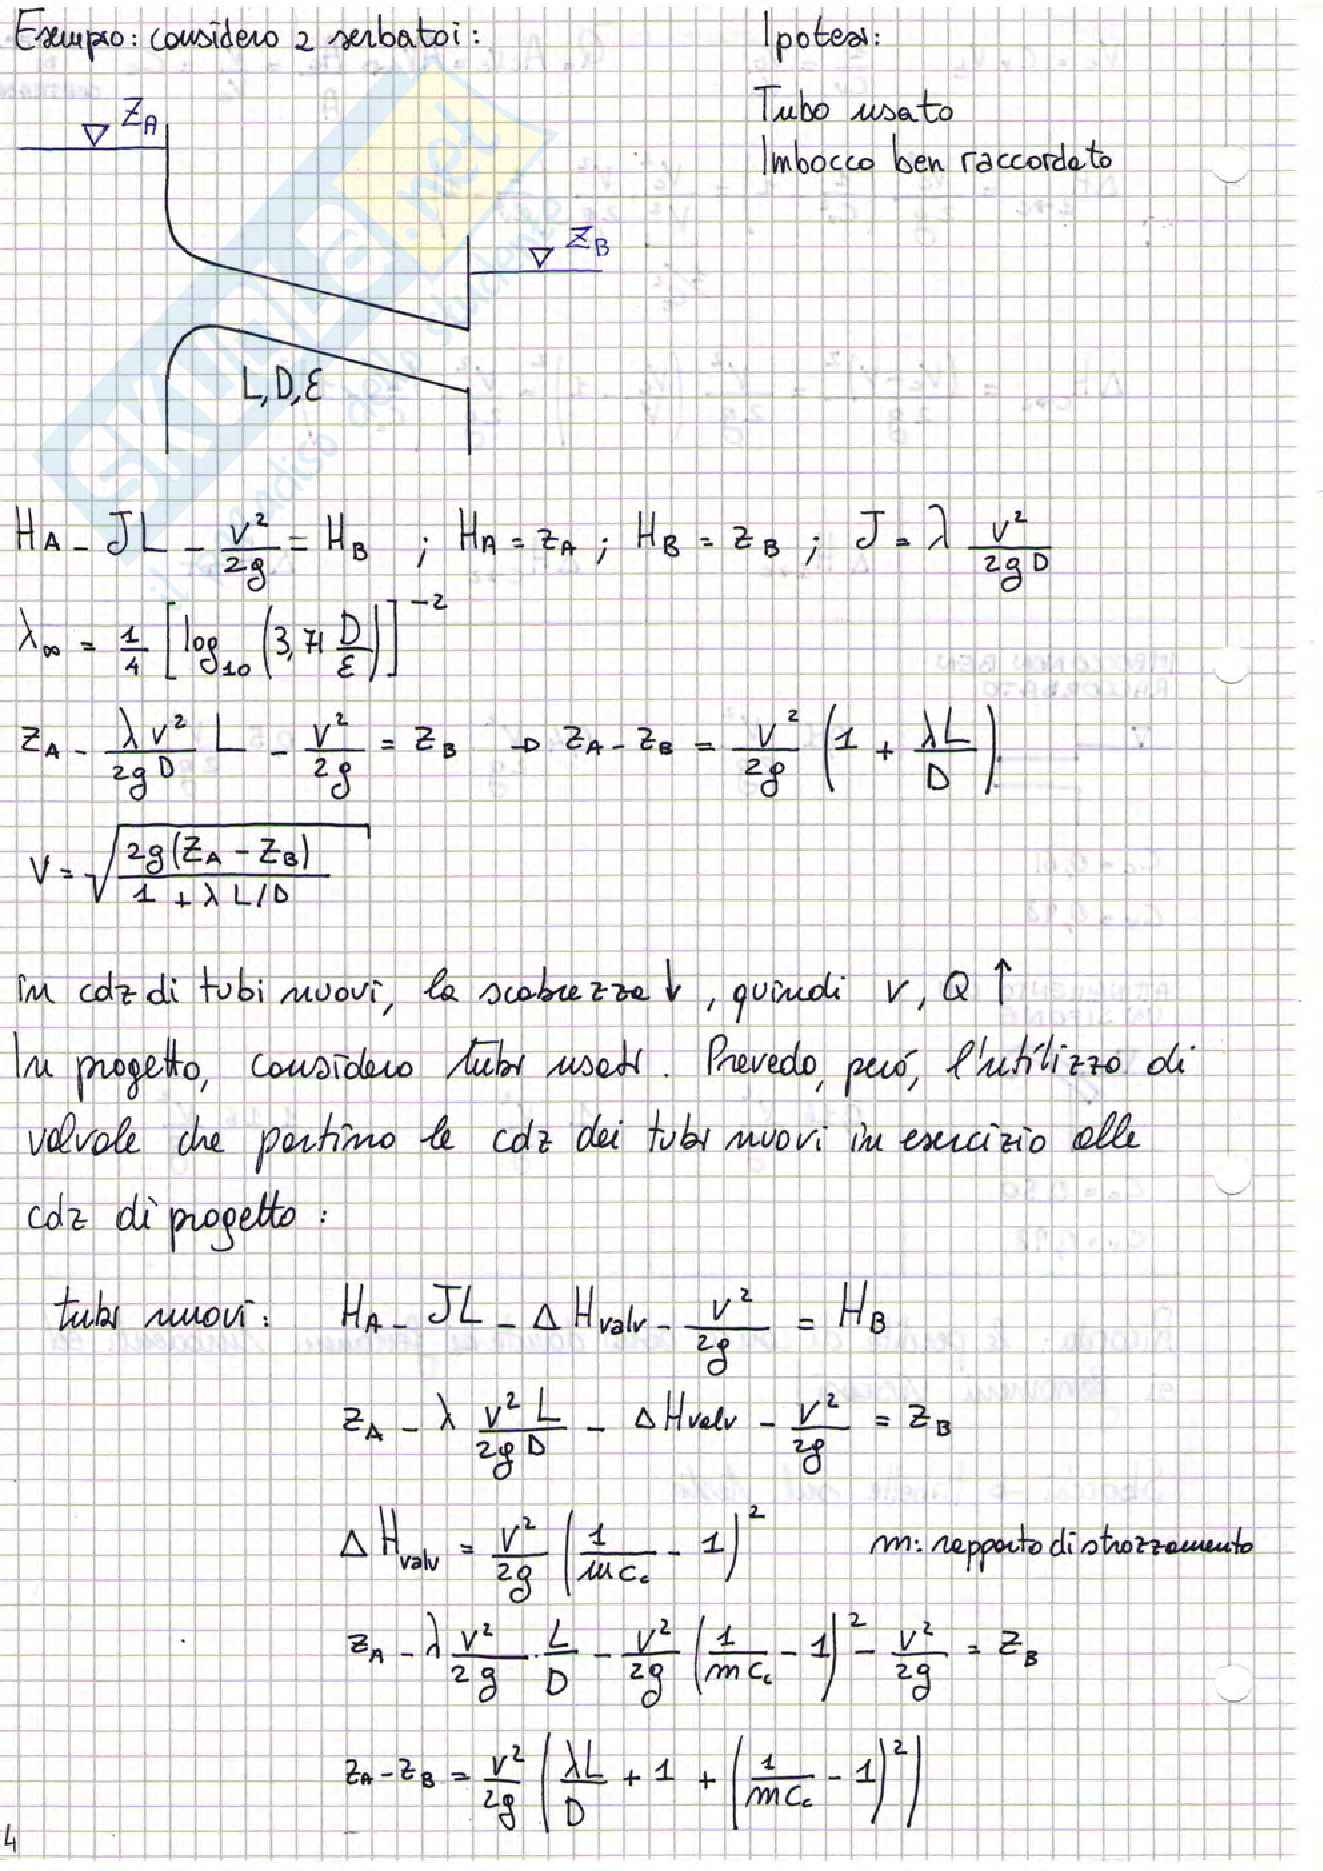 Esempio: considero 2 serbatoi:
Ipotesi:
Tubo usato
Imbocco ben raccordato
Z_A
Z_B
L, D, ε
SKUOLA.net
H_A - JL - v²/2g = H_B ; H_A = z_A ; H_B = z_B ; J = λ v²/2gD
λ_∞ = 1/4 [log_10 (3,71 D/ε)]^-2
z_A - λv²/2gD L - v²/2g = z_B → z_A - z_B = v²/2g (1 + λL/D).
v = √(2g(z_A - z_B) / 1 + λL/D)
in cdz di tubi nuovi, la scabrezza ↓, quindi v, Q ↑
In progetto, considero tubi usati. Prevedo, però, l'utilizzo di
valvole che portino le cdz dei tubi nuovi in esercizio alle
cdz di progetto:
tubi nuovi: H_A - JL - ΔH_valv - v²/2g = H_B
z_A - λ v²L/2gD - ΔH_valv - v²/2g = z_B
ΔH_valv = v²/2g (1/mc_c - 1)² m: rapporto di strozzamento
z_A - λ v²/2g · L/D - v²/2g (1/mc_c - 1)² - v²/2g = z_B
z_A - z_B = v²/2g (λL/D + 1 + (1/mc_c - 1)²)
4